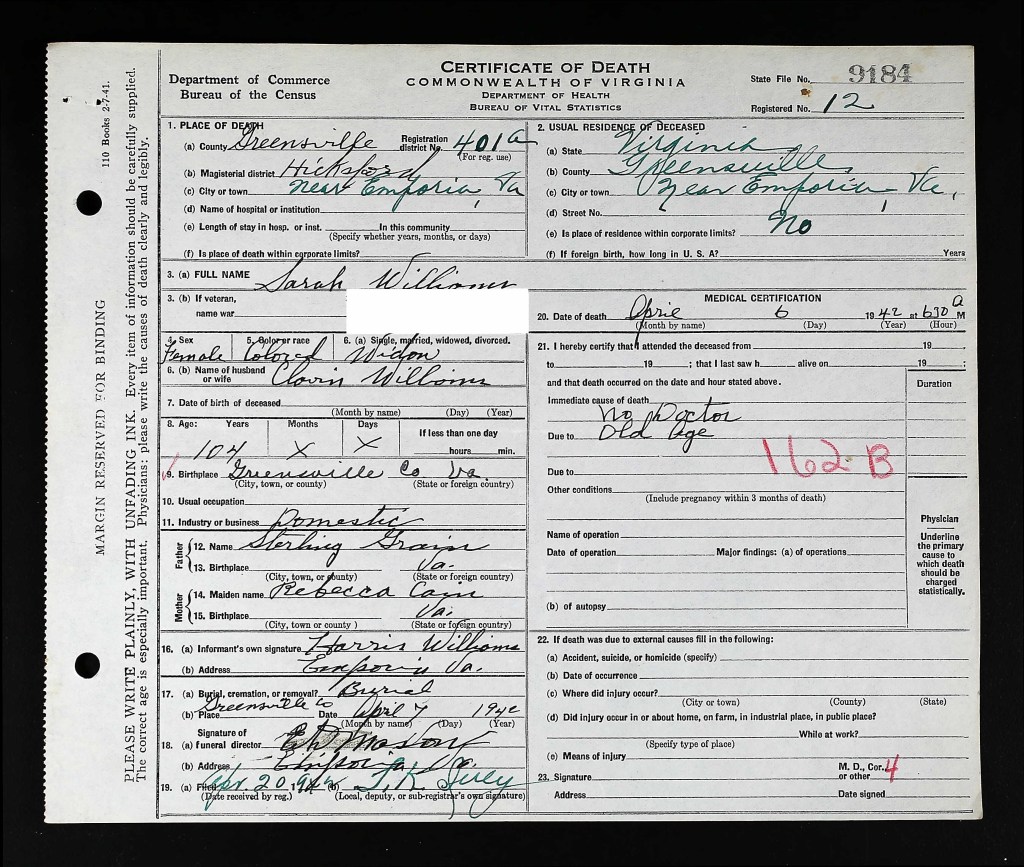 110 Books 2-7-41.
MARGIN RESERVED FOR BINDING
PLEASE WRITE PLAINLY, WITH UNFADING INK. Every item of information should be carefully supplied.
The correct age is especially important. Physicians: please write the causes of death clearly and legibly.
Department of Commerce
Bureau of the Census
CERTIFICATE OF DEATH
COMMONWEALTH OF VIRGINIA
DEPARTMENT OF HEALTH
BUREAU OF VITAL STATISTICS
State File No. 9184
Registered No. 12
1. PLACE OF DEATH
(a) County Greensville Registration district No. 401a
(For reg. use)
(b) Magisterial district Hicksford
(c) City or town near Emporia, Va
(d) Name of hospital or institution
(e) Length of stay in hosp. or inst. In this community
(Specify whether years, months, or days)
(f) Is place of death within corporate limits?
2. USUAL RESIDENCE OF DECEASED
(a) State Virginia
(b) County Greensville
(c) City or town Near Emporia, Va,
(d) Street No.
(e) Is place of residence within corporate limits? No
(f) If foreign birth, how long in U. S. A? Years
3. (a) FULL NAME Sarah Williams
3. (b) If veteran,
name war
4. Sex 5. Color or race 6. (a) Single, married, widowed, divorced.
Female Colored Widow
6. (b) Name of husband
or wife Williams
7. Date of birth of deceased
(Month by name) (Day) (Year)
8. Age: Years Months Days If less than one day
104 X X hours min.
9. Birthplace Greensville Co Va.
(City, town, or county) (State or foreign country)
10. Usual occupation
11. Industry or business Domestic
Father
12. Name Sterling
13. Birthplace Va.
(City, town, or county) (State or foreign country)
Mother
14. Maiden name Rebecca Cain
15. Birthplace Va.
(City, town, or county) (State or foreign country)
16. (a) Informant's own signature Harris Williams
(b) Address Emporia Va.
17. (a) Burial, cremation, or removal? Burial
(b) Place Greensville Co Date April 7 1942
(Month by name) (Day) (Year)
Signature of
18. (a) funeral director Mason
(b) Address Emporia Va.
19. (a) Filed Apr. 20, 1942 (b) T. K.
(Date received by reg.) (Local, deputy, or sub-registrar's own signature)
MEDICAL CERTIFICATION
20. Date of death April 6 1942 at 630 A M
(Month by name) (Day) (Year) (Hour)
21. I hereby certify that I attended the deceased from 19
to 19 ; that I last saw h alive on 19 ;
and that death occurred on the date and hour stated above.
Duration
Immediate cause of death
No Doctor
Due to Old Age
162 B
Due to
Other conditions
(Include pregnancy within 3 months of death)
Name of operation
Date of operation Major findings: (a) of operations
(b) of autopsy
Physician
Underline
the primary
cause to
which death
should be
charged
statistically.
22. If death was due to external causes fill in the following:
(a) Accident, suicide, or homicide (specify)
(b) Date of occurrence
(c) Where did injury occur?
(City or town) (County) (State)
(d) Did injury occur in or about home, on farm, in industrial place, in public place?
While at work?
(Specify type of place)
(e) Means of injury
23. Signature M. D., Cor. or other 4
Address Date signed